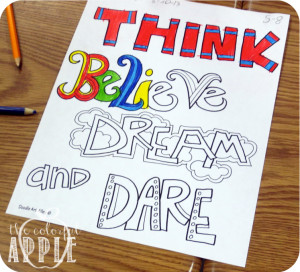 5-8
THINK
BELIEVE
DREAM
and DARE
the colorful
APPLE